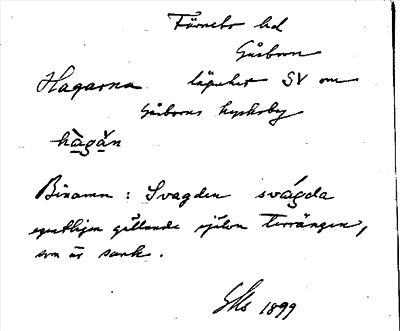 Färnebo hd
Gåsborn
Hagarna läge SV om
Gåsborns kyrkby
hàgăn
Binamn : Svagden svágda
egentligen gällande själva terrängen,
som är sank.
1899